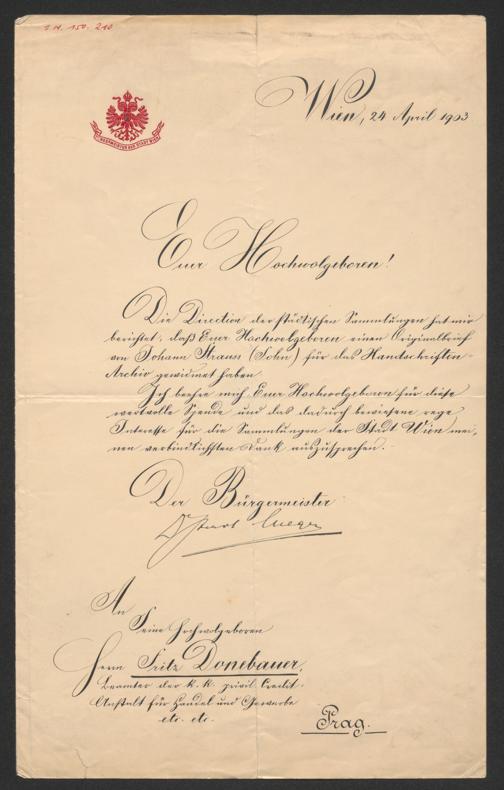 I. N. 150.210
BÜRGERMEISTER DER STADT WIEN
Wien, 24 April 1903
Euer Hochwolgeboren!
Die Direction der städtischen Sammlungen hat mir
berichtet, daß Euer Hochwolgeboren einen Originalbrief
von Johann Strauss (Sohn) für das Handschriften-
Archiv gewidmet haben.
Ich beehre mich Euer Hochwolgeboren für diese
wertvolle Spende und das dadurch bewiesene rege
Interesse für die Sammlungen der Stadt Wien mei-
nen verbindlichsten Dank auszusprechen.
Der Bürgermeister:
Dr Karl Lueger
An
Seine Hochwolgeboren
Herrn Fritz Donebauer,
Beamter der k. k. privil. Credit-
Anstalt für Handel und Gewerbe
etc. etc.
Prag.